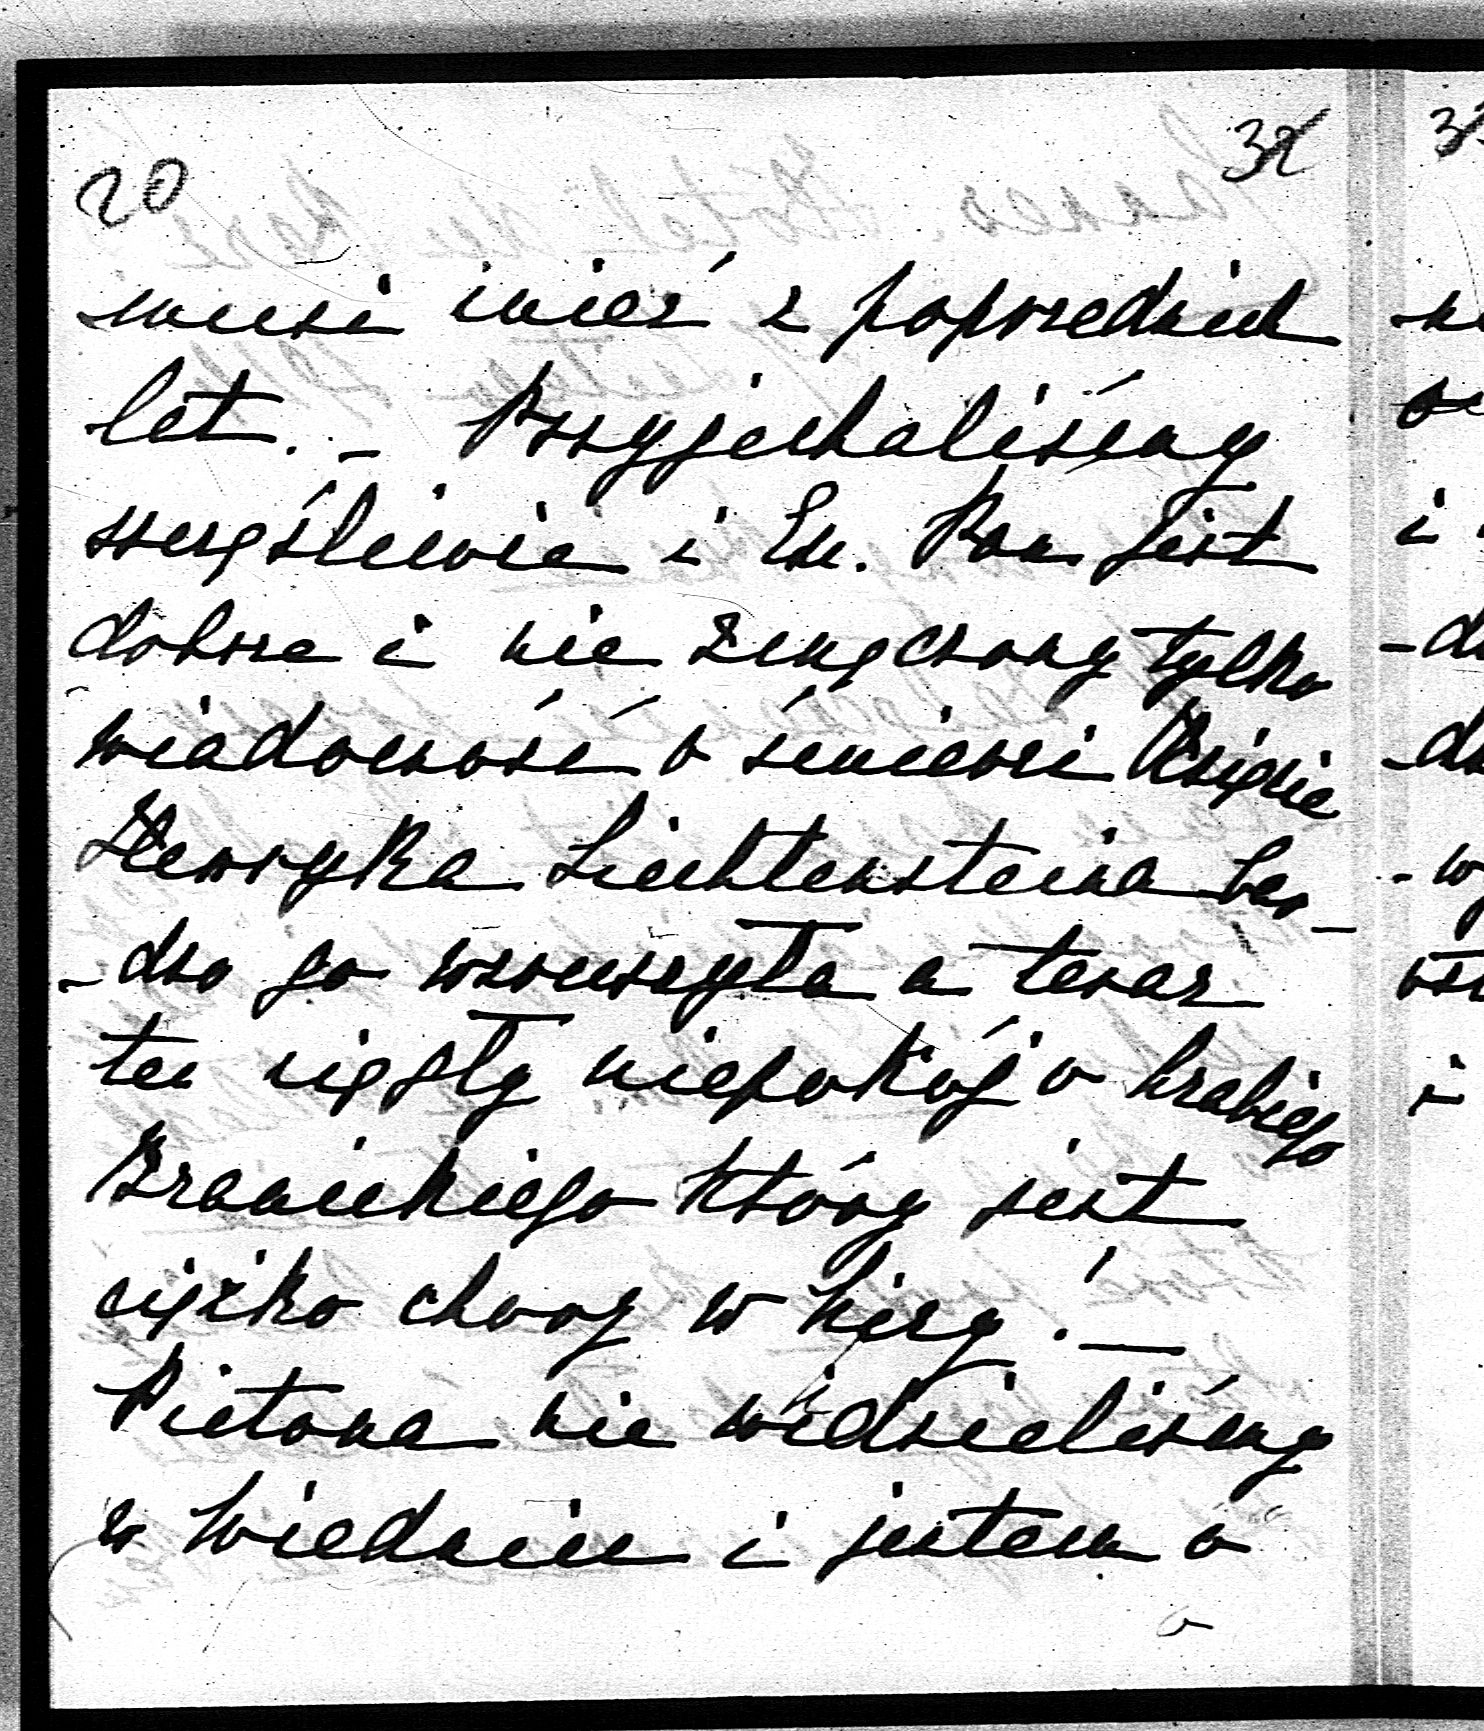 20
32
musi mieć z poprzednich
let. – Przyjechaliśmy
szczęśliwie i Ex. Pan jest
dobrze i nie zmęczony tylko
wiadomość o śmierci Księcia
Henryka Liechtensteina bar–
–dzo go wzruszyła a teraz
ten ciągły niepokój o hrabiego
Branickiego który jest
ciężko chory w Nicy. –
Pietona nie widzieliśmy
w Wiedniu i jestem o